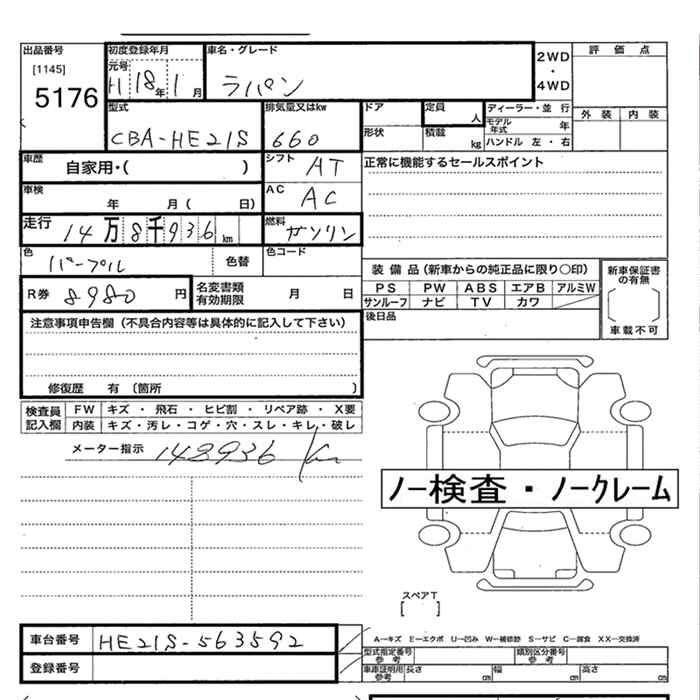 出品番号 初度登録年月 車名・グレード 2WD・4WD 評価点
[1145] 元号 H 18年 1月 ラパン
5176
型式 排気量又はkw ドア 定員 人 ディーラー・並行 外装 内装
CBA-HE21S 660 形状 積載 kg モデル年式 年
ハンドル 左・右
車歴 自家用・( ) シフト AT 正常に機能するセールスポイント
車検 年 月( 日) AC AC
走行 14万8千936km 燃料 ガソリン
色 パープル 色替 色コード
装備品(新車からの純正品に限り〇印) 新車保証書の有無
PS PW ABS エアB アルミW
サンルーフ ナビ TV カワ
[ ] 車載不可
R券 8980円 名変書類有効期限 月 日
後日品
注意事項申告欄(不具合内容等は具体的に記入して下さい)
修復歴 有(箇所 )
検査員記入欄 FW キズ・飛石・ヒビ割・リペア跡・X要
内装 キズ・汚レ・コゲ・穴・スレ・キレ・破レ
メーター指示 148936 Km
ノー検査・ノークレーム
スペアT
[ ]
車台番号 HE21S-563592
A—キズ E—エクボ U—凹み W—補修跡 S—サビ C—腐食 XX—交換済
登録番号
型式指定番号 参考 類別区分番号 参考
車庫証明用 参考 長さ cm 幅 cm 高さ cm